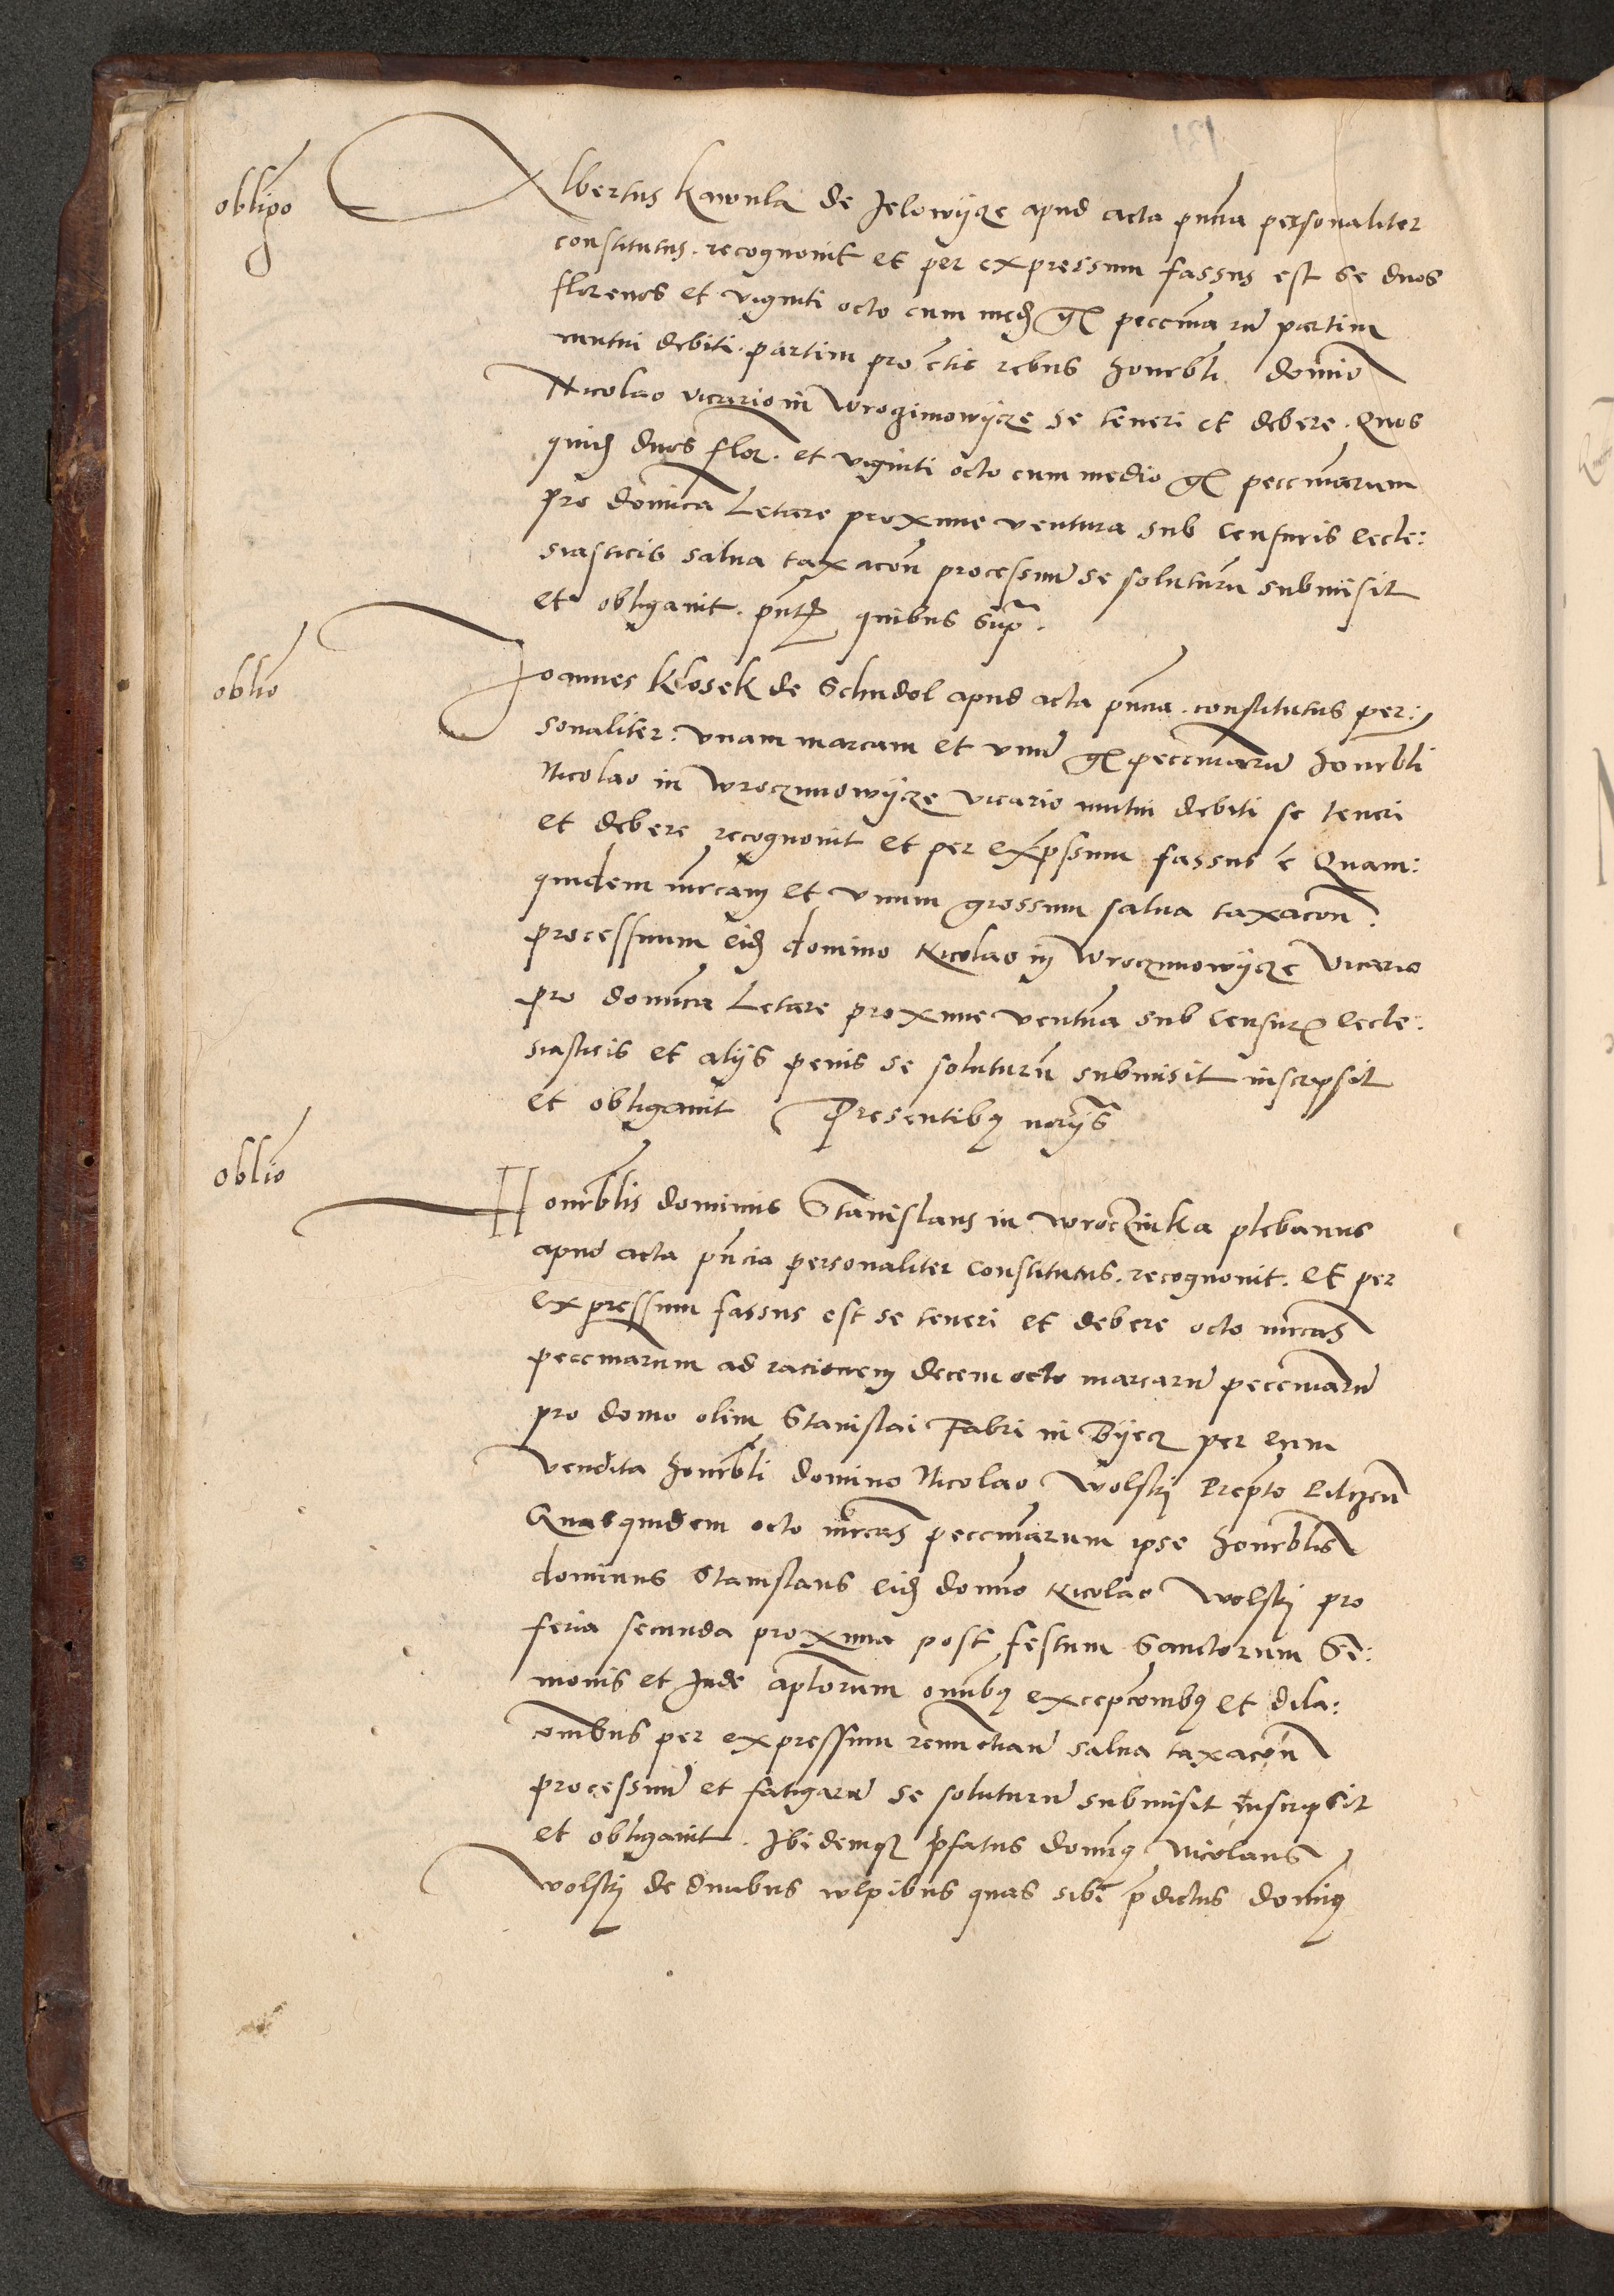 obligo
Albertus Kawula de Jelowijcze apud acta pnnia personaliter
constitutus. recognovit et per expressum fassus est se duos
florenos et viginti octo cum med gr peccuniaru partim
mutui debiti. partim pro certis rebus honrbli domino
Nicolao vicario in Wrozimowijcze se teneri et debere. Quos
quid duos flor. et viginti octo cum medio gr peccuniarum
pro dominica Letare proxime ventura sub censuris eccle:
siasticis salva taxacon processuu se soluturu submisit
et obligavit. pntib quibus supra.
oblio
Joannes Klosek de Schudol apud acta pnnia. constitutus per:
sonaliter. unam marcam et unu gr peccuniaru honrbli
Nicolao in Wroczimowijcze vicario mutui debiti se teneri
et debere recognovit et per expssum fassus e Quam:
quidem mrcam et unum grossum salva taxacon.
processuum eid domino Nicolao in Wroczimowijcze vicario
pro dominica Letare proxime ventura sub censuris eccle:
siasticis et alijs penis se soluturu submisit inscripsit
et obligavit Presentibq norijs
oblio
Honrblis dominus Stanislaus in Wrocziuka plebanus
apud acta pncia personaliter constitutus. recognovit. et per
expressum fassus est se teneri et debere octo mrcas
peccuniarum ad racionem decem octo marcaru peccuniaru
pro domo olim Stanislai Fabri in Byecz per eum
vendita honrbli domino Nicolao Wolski
Quasquidem octo mrcas peccuniarum ipse honrblis
dominus Stanislaus eid domino Nicolao Wolski pro
feria secunda proxima post festum Sanctorum Si:
monis et Jude aplorum omnibq excepcombq et dila:
comibus per expressum renuctian salva taxacon
processuu et fatigaru se soluturu submisit inscripsit
et obligavit. Ibidemq pfatus domiq Nicolaus
Wolski de duabus wlpibus quas sibi pdictus domiq